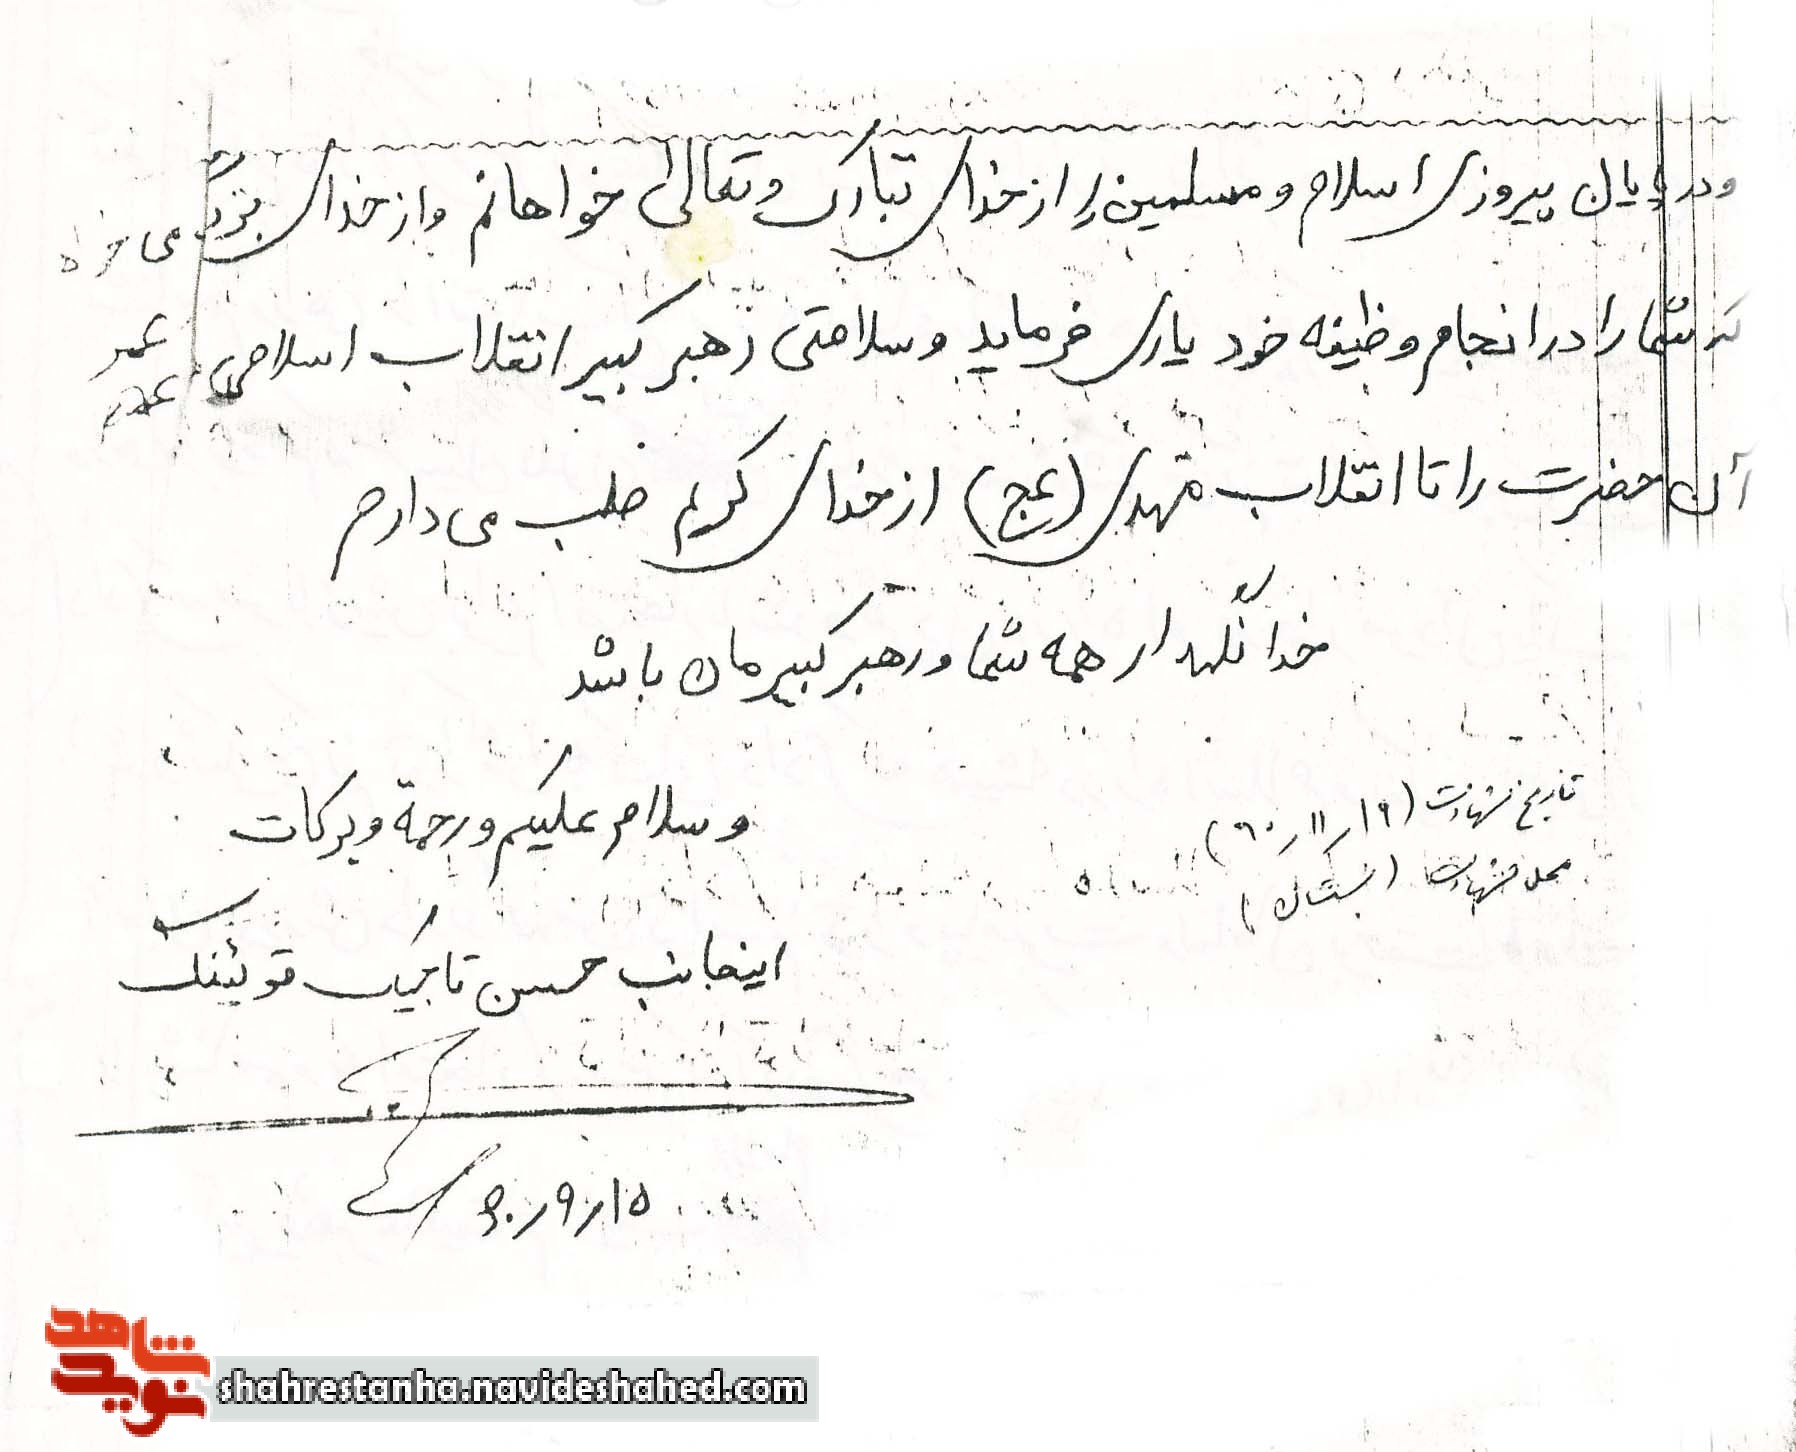 و در پایان پیروزی اسلام و مسلمین را از خدای تبارک و تعالی خواهانم و از خدای بزرگ می خواه
که شما را در انجام وظیفه خود یاری فرماید و سلامتی رهبر کبیر انقلاب اسلامی عمر
آن حضرت را تا انقلاب مهدی (عج) از خدای کریم طلب می دارم
خدا نگهدار همه شما و رهبر کبیرمان باشد
و سلام علیکم و رحمة و برکات
تاریخ شهادت (۱۹ر۱۱ر۶۰)
محل شهادت (بستان)
اینجانب حسن تاجیک قوئینک
۱۵ر۹ر۶۰
شاهد
نوید
shahrestanha.navideshahed.com